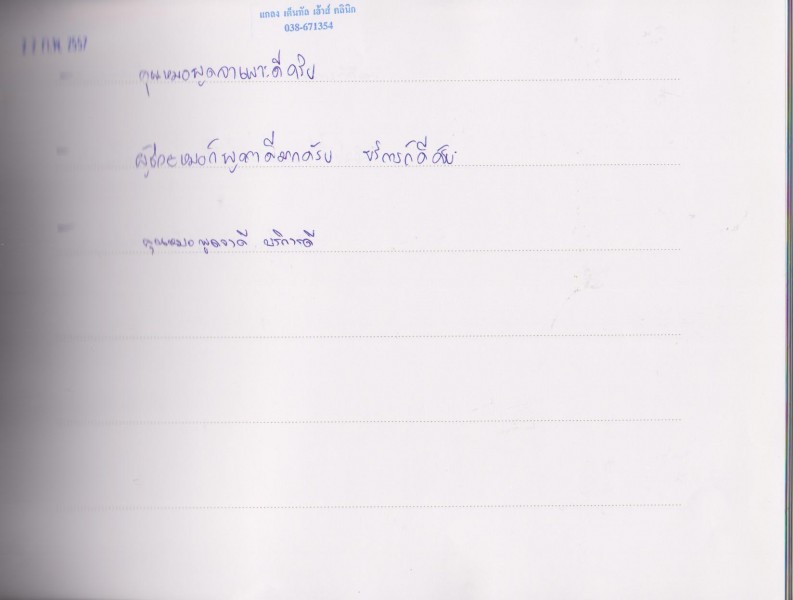 แกลง เด็นทัล เฮ้าส์ คลินิก
038-671354
คุณหมอพูดจาเพราะดีครับ
ผู้ช่วยหมอก็พูดจาดีมากครับ บริการก็ดีครับ
คุณหมอพูดจาดี บริการดี